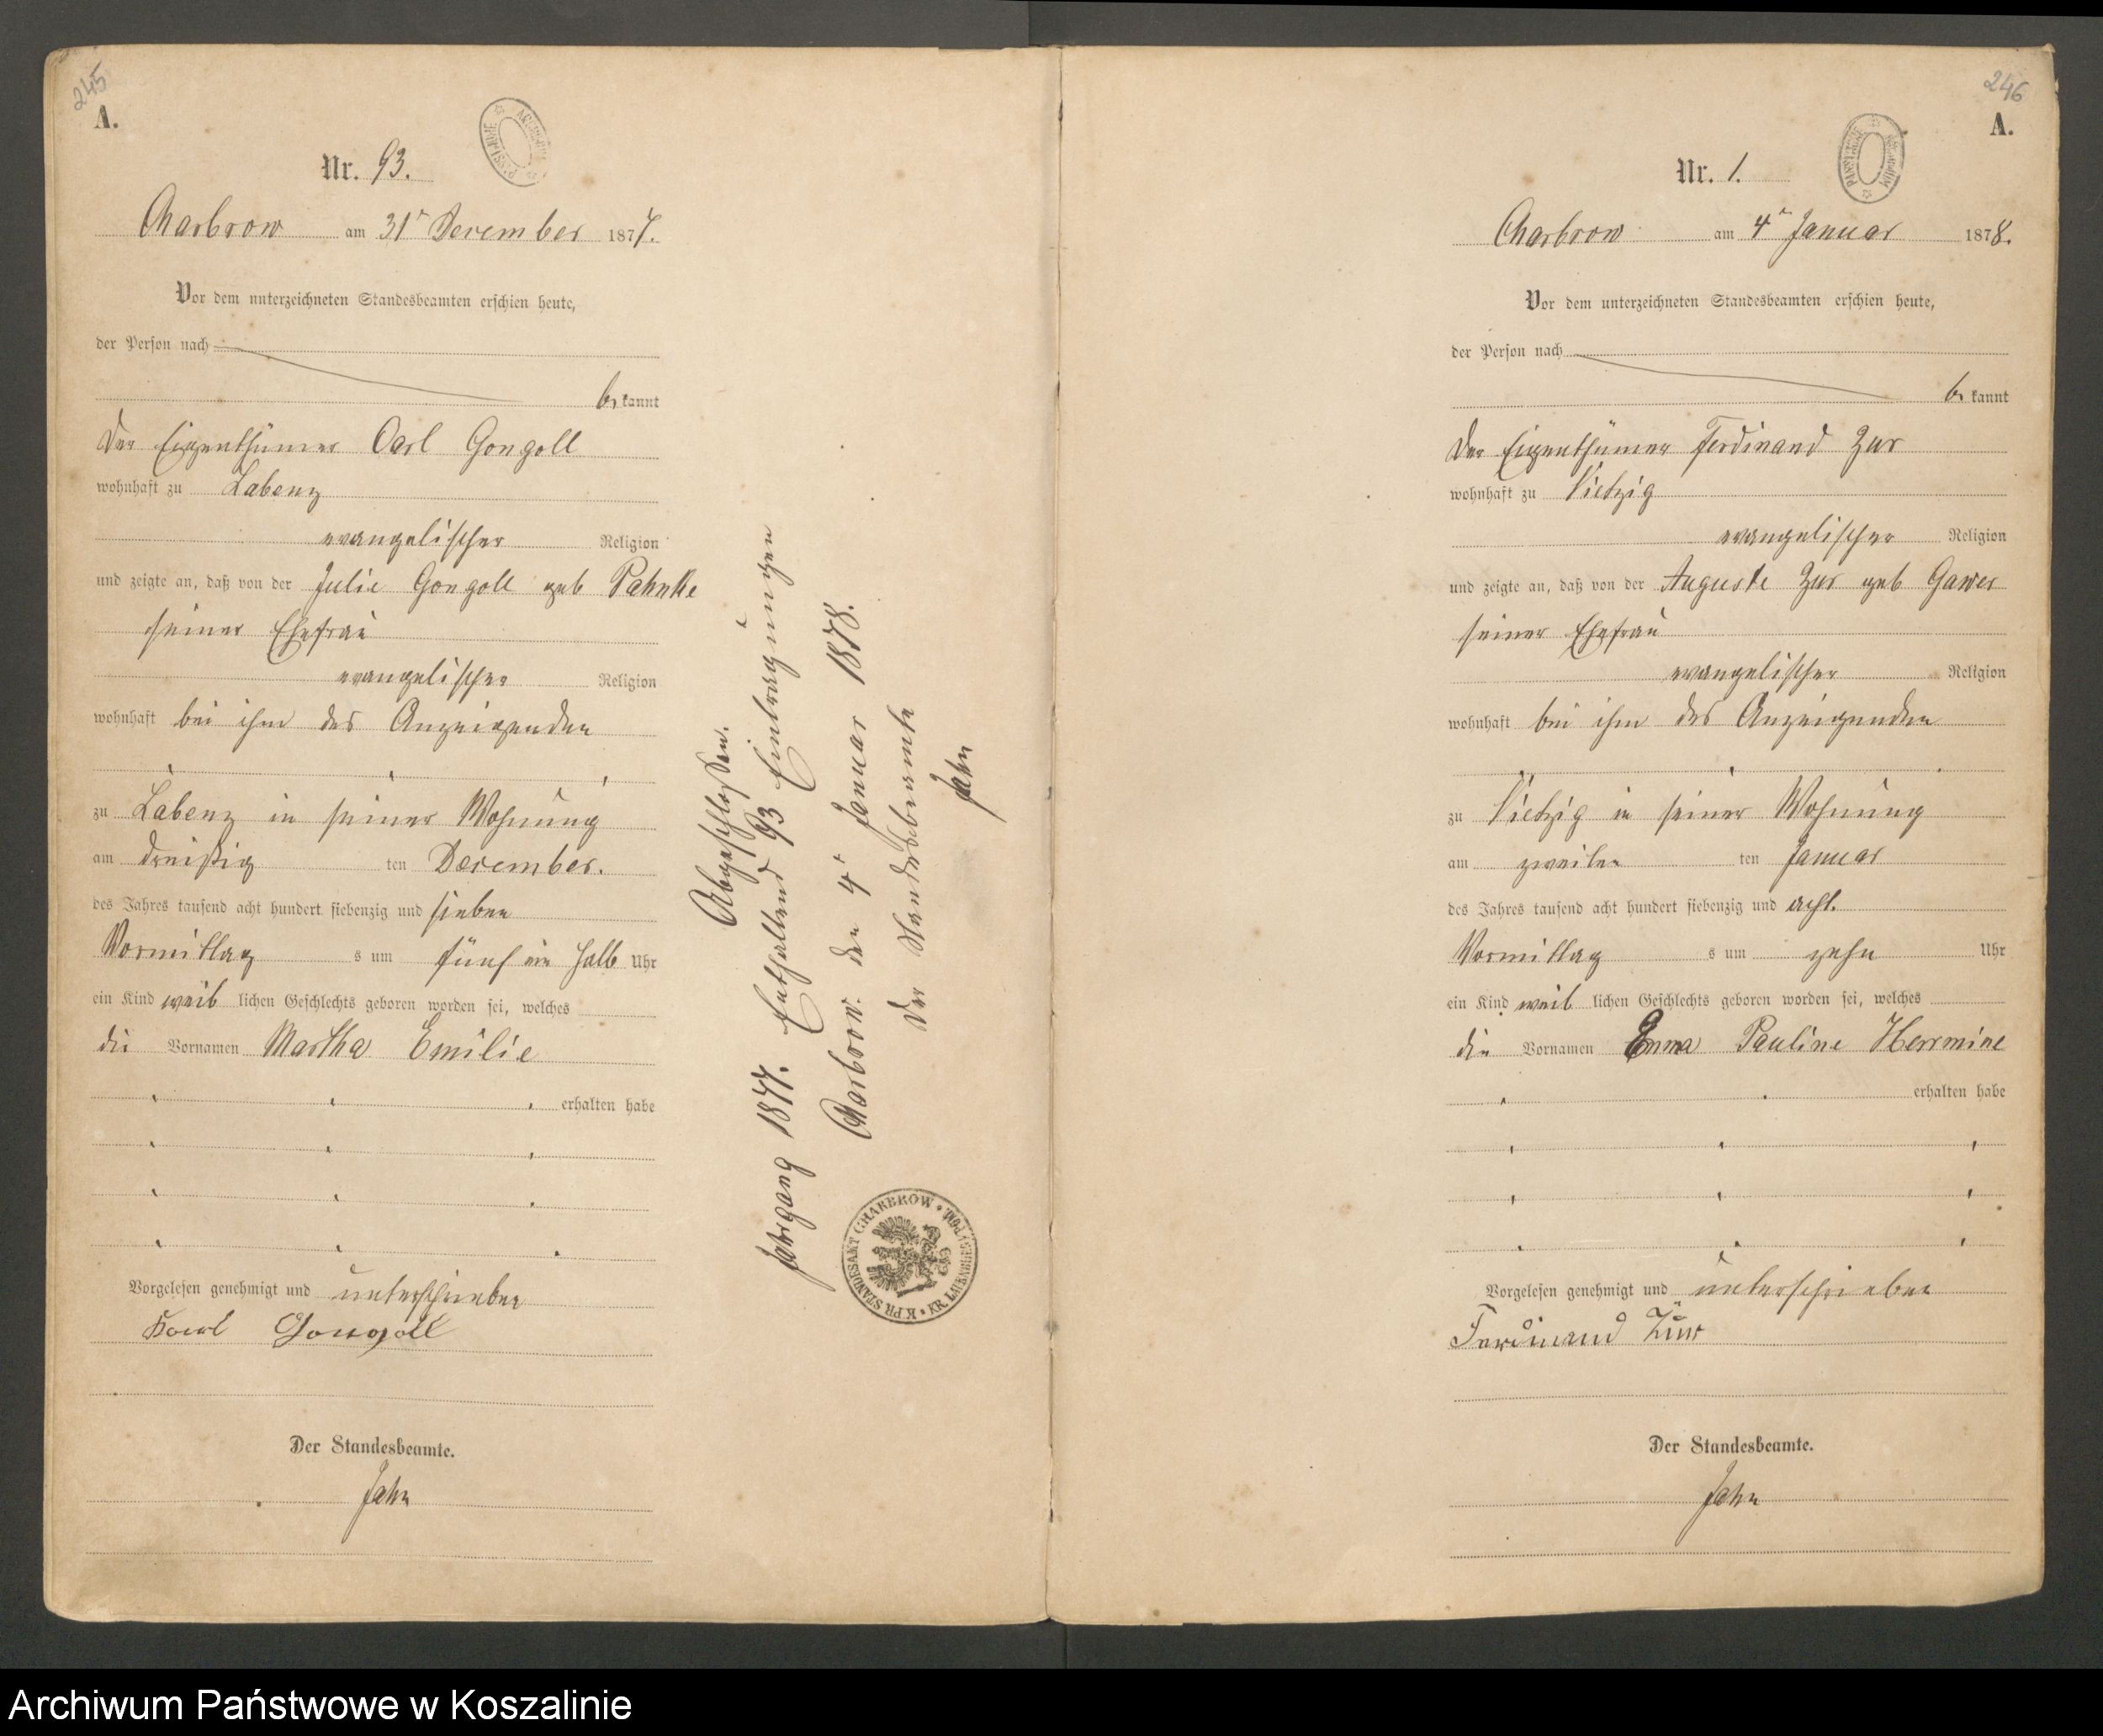 245
A.
Nr. 93.
Charbrow am 31ᵗ December 1877.
Vor dem unterzeichneten Standesbeamten erschien heute,
der Person nach
be kannt
Der Eigenthümer Carl Gongoll
wohnhaft zu Labenz
evangelischer Religion
und zeigte an, daß von der Julie Gongoll geb Pahnke
seiner Ehefrau
evangelischer Religion
wohnhaft bei ihm des Anzeigenden
zu Labenz in seiner Wohnung
am dreißig ten December.
des Jahres tausend acht hundert siebenzig und sieben
Vormittag s um fünf ein halb Uhr
ein Kind weib lichen Geschlechts geboren worden sei, welches
die Vornamen Martha Emilie
erhalten habe
Vorgelesen genehmigt und unterschrieben
Karl Gongoll
Der Standesbeamte.
Jahn
Abgeschlossen.
Jahrgang 1877. Enthaltend 93 Eintragungen
Charbrow. den 4ᵗ Januar 1878.
Der Standesbeamte
Jahn
K. PR. STANDESAKT CHARBROW • KR. LAUENBURG I/POM.
246
A.
Nr. 1.
Charbrow am 4ᵗ Januar 1878.
Vor dem unterzeichneten Standesbeamten erschien heute,
der Person nach
be kannt
Der Eigenthümer Ferdinand Zur
wohnhaft zu Vietzig
evangelischer Religion
und zeigte an, daß von der Auguste Zur geb Gawer
seiner Ehefrau
evangelischer Religion
wohnhaft bei ihm des Anzeigenden
zu Vietzig in seiner Wohnung
am zweiten ten Januar
des Jahres tausend acht hundert siebenzig und acht.
Vormittag s um zehn Uhr
ein Kind weib lichen Geschlechts geboren worden sei, welches
die Vornamen Emma Pauline Herrmine
erhalten habe
Vorgelesen genehmigt und unterschrieben
Ferdinand Zur
Der Standesbeamte.
Jahn
Archiwum Państwowe w Koszalinie